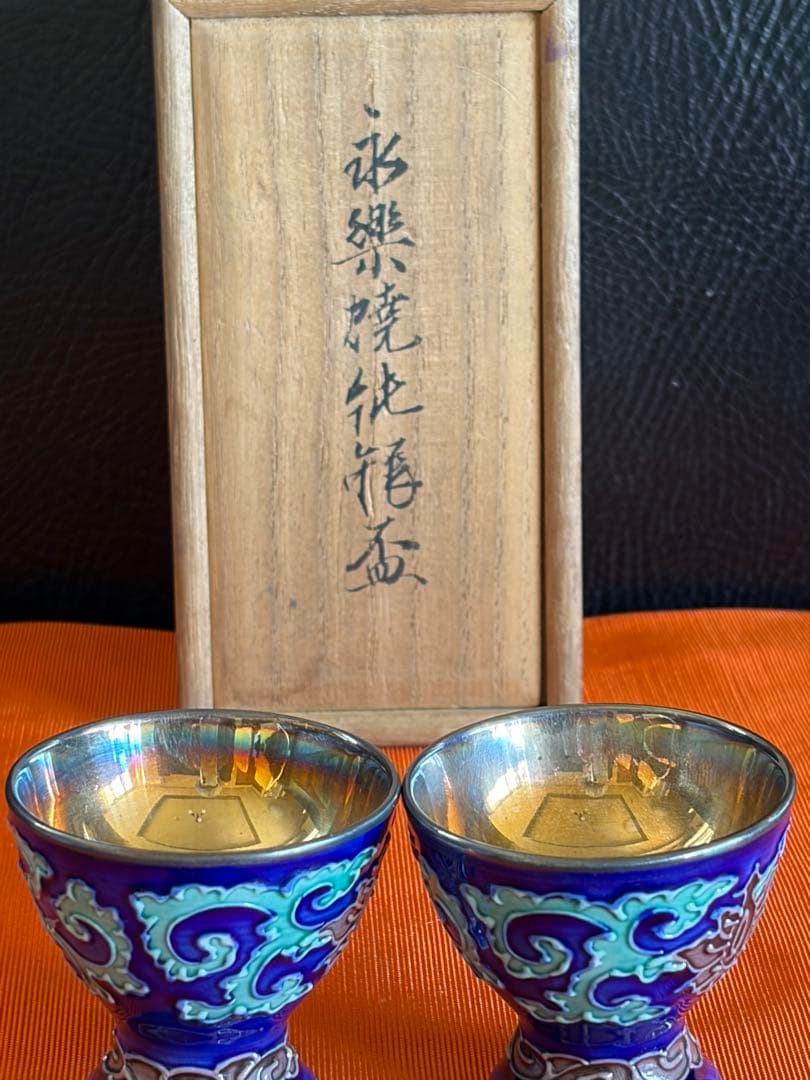 永樂焼純銀盃